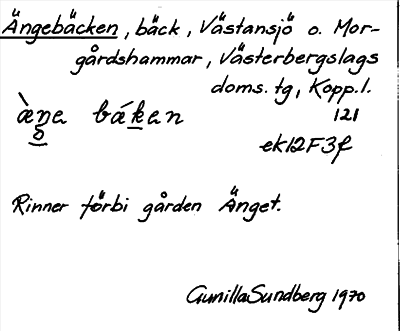 Ängebäcken, bäck, Västansjö o. Mor-
gårdshammar, Västerbergslags
doms. tg, Kopp.l.
121
ek12F3f
Rinner förbi gården Änget.
Gunilla Sundberg 1970